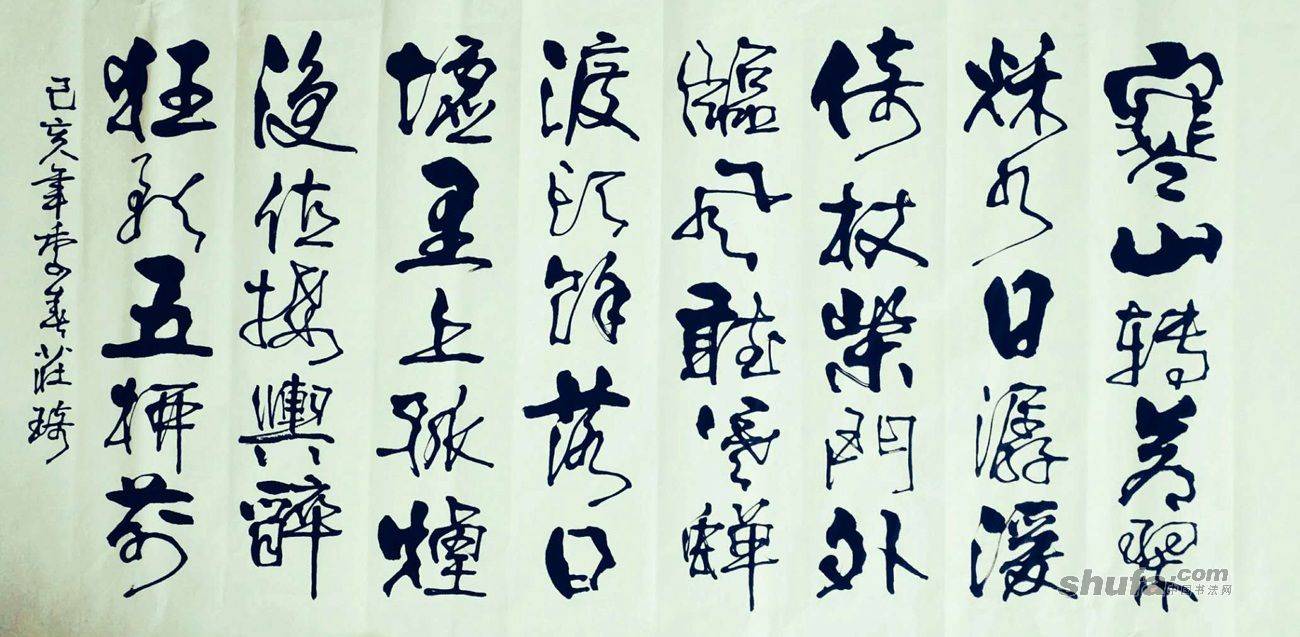 寒山轉蒼翠
秋水日潺湲
倚杖柴門外
臨風聽暮蟬
渡頭餘落日
墟里上孤煙
復值接輿醉
狂歌五柳前
己亥年季春莊琦
shufa.com
中国书法网